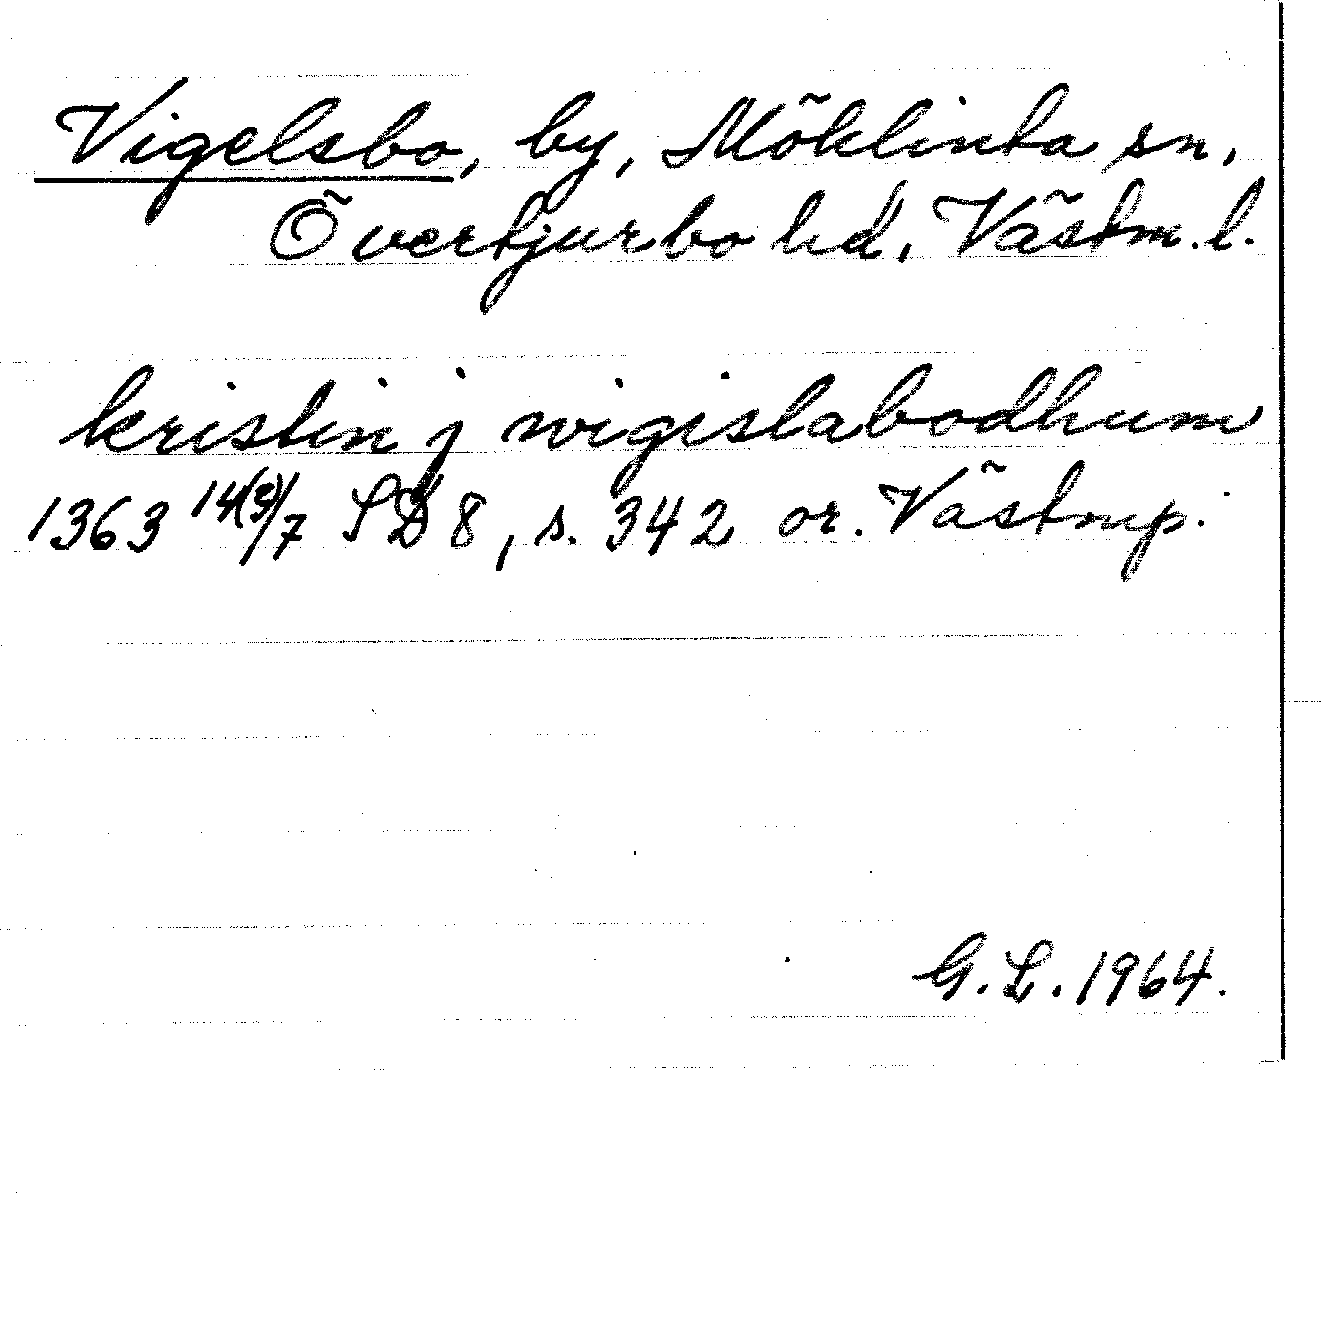 Vigelsbo, by, Möklinta sn,
Övertjurbo hd, Västm. l.
kristin j wigislabodhum
1363 14(s)/7 SD 8, s. 342 or. Västmp.
G. L. 1964.